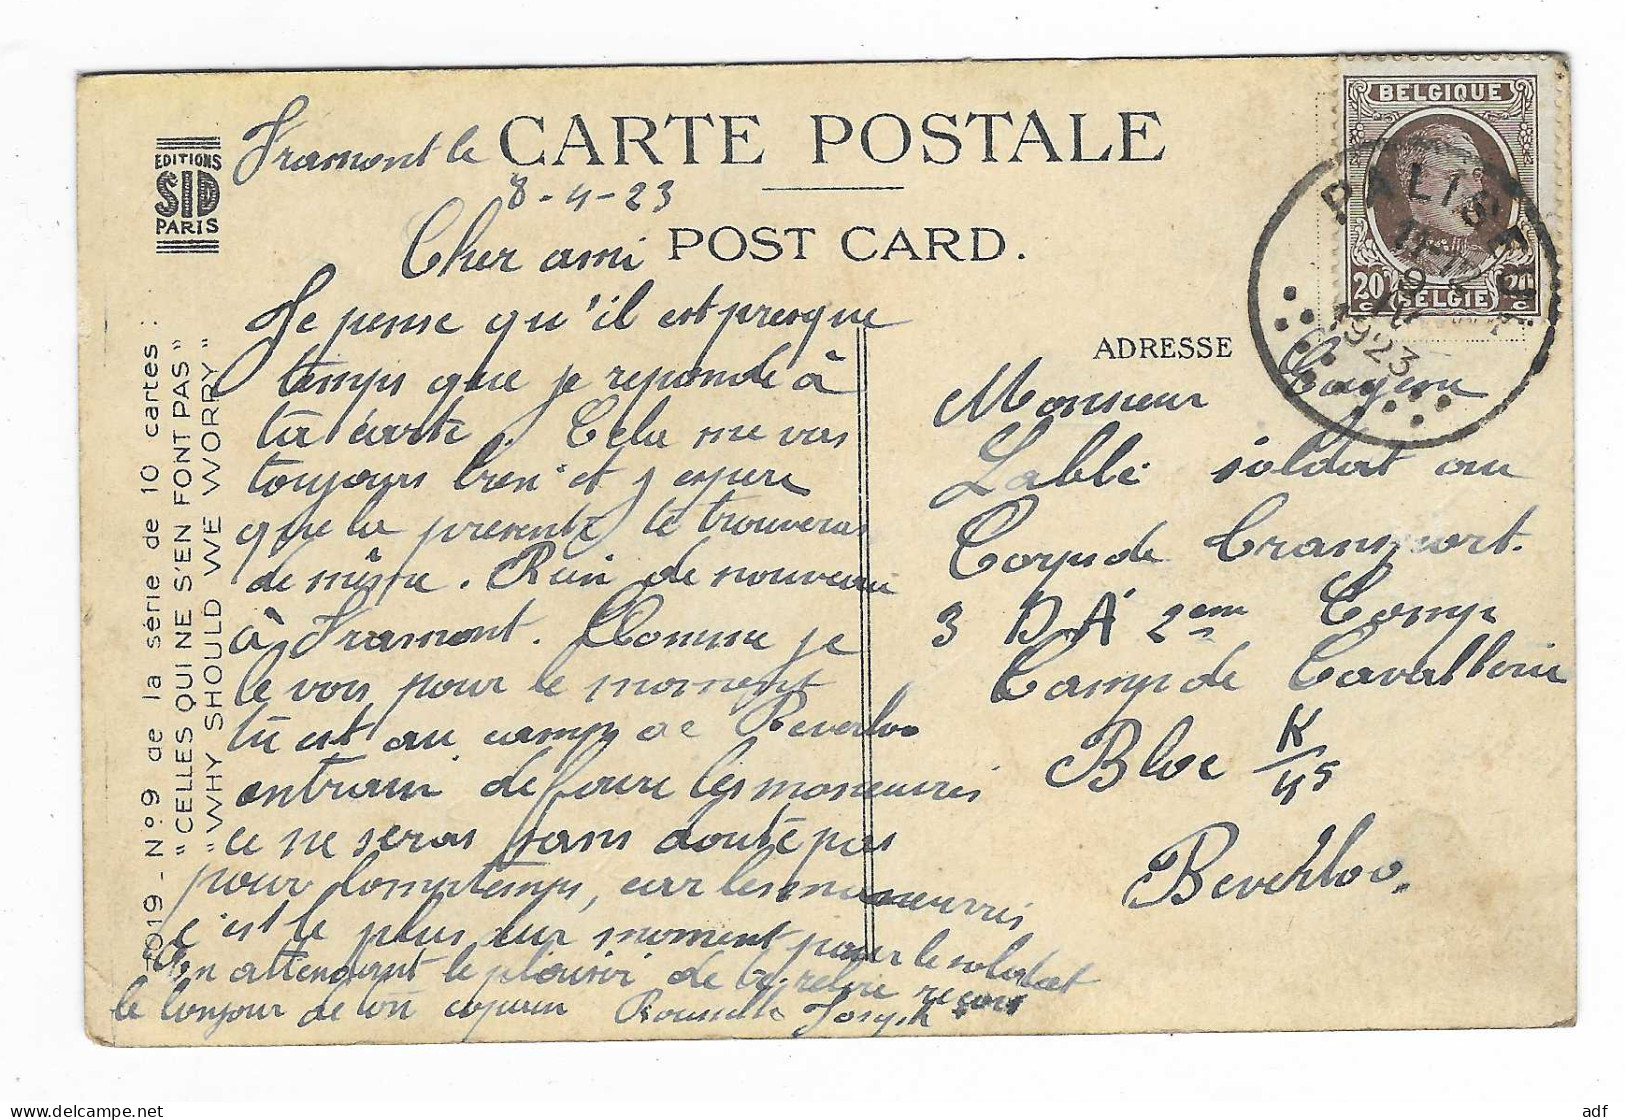 CARTE POSTALE
POST CARD.
EDITIONS
SID
PARIS
7019 - No 9 de la série de 10 cartes :
"CELLES QUI NE S'EN FONT PAS"
"WHY SHOULD WE WORRY"
BELGIQUE
20 c BELGIE 20 c
PALISEUL
9 IV
1923
Framont le
8-4-23
Cher ami
Je pense qu'il est presque
temps que je reponde à
ta carte. Cela me vas
toujours bien et j espere
que la presente te trouveras
de même. Rien de nouveau
à Framont. Comme je
le vois pour le moment
tu est au camp de Beverloo
entrain de faire les maneuvres
ce ne seras sans doute pas
pour lomptemps, car les maneuvres
c'est le plus dur moment pour le soldat
En attendant le plaisir de te relire recois
le bonjour de ton copain Joseph
ADRESSE
Monsieur
Labbé soldat au
Corps de transport.
3 D A 2em Comp
Camp de Cavallerie
Bloc K/45
Beverloo.
adf